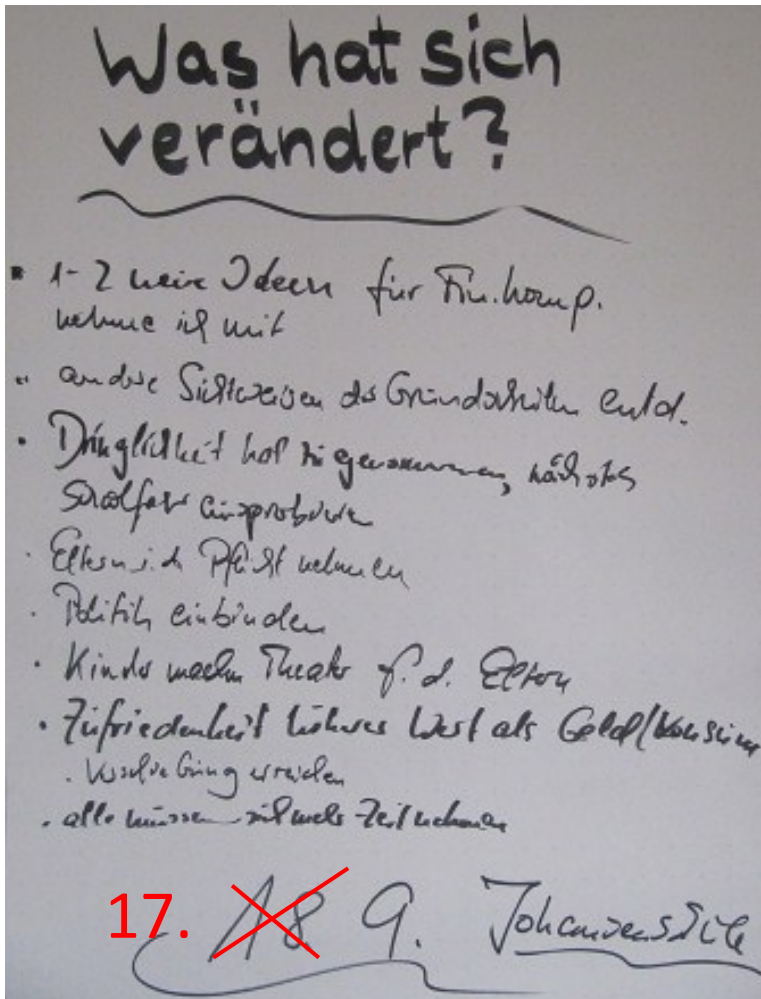 Was hat sich
verändert?
1-2 neue Ideen für Fin.komp.
nehme ich mit
andere Sichtweisen des Grundschülers entd.
Dringlichkeit hat zugenommen, nächstes
Schuljahr ausprobieren
Eltern i. d. Pflicht nehmen
Politik einbinden
Kinder machen Theater f. d. Eltern
Zufriedenheit höherer Wert als Geld/Konsum
erreichen
alle müssen sich mehr Zeit nehmen
17. 18 9.